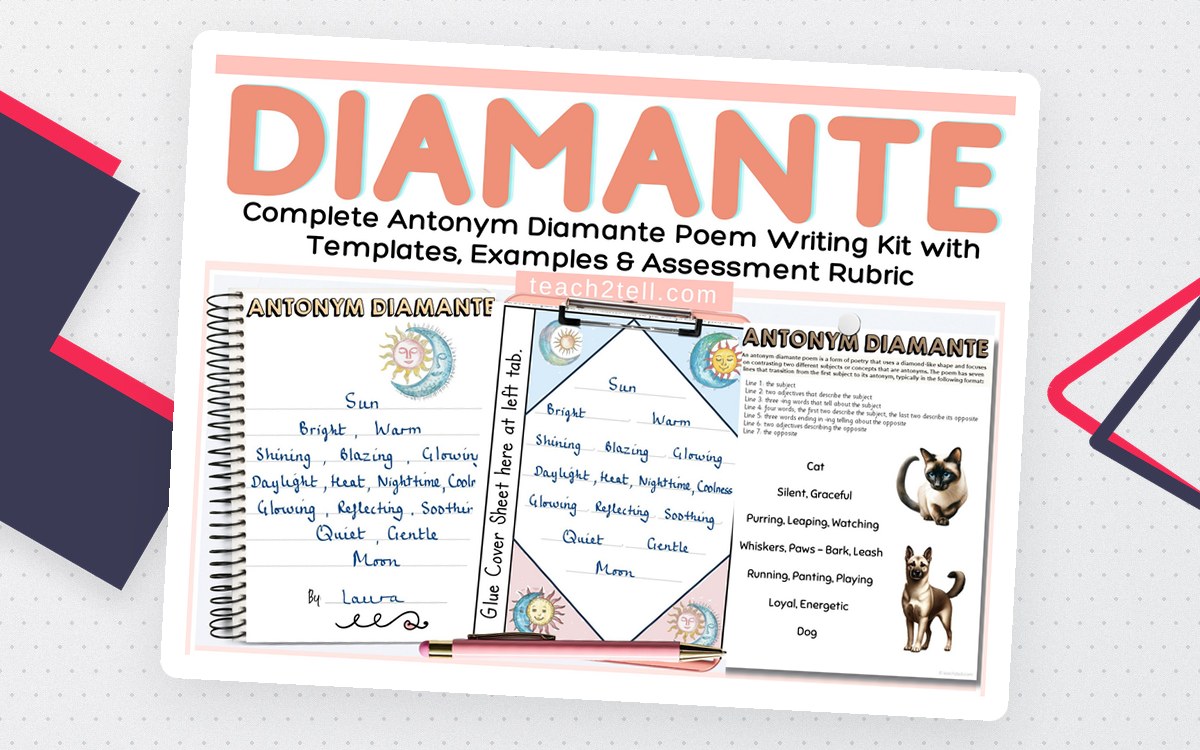 DIAMANTE
Complete Antonym Diamante Poem Writing Kit with
Templates, Examples & Assessment Rubric
teach2tell.com
ANTONYM DIAMANTE
Sun
Bright, Warm
Shining, Blazing, Glowing
Daylight, Heat, Nighttime, Cooln
Glowing, Reflecting, Soothin
Quiet, Gentle
Moon
By Laura
Glue Cover Sheet here at left tab.
Sun
Bright Warm
Shining Blazing Glowing
Daylight, Heat, Nighttime, Coolness
Glowing Reflecting Soothing
Quiet Gentle
Moon
ANTONYM DIAMANTE
An antonym diamante poem is a form of poetry that uses a diamond-like shape and focuses
on contrasting two different subjects or concepts that are antonyms. The poem has seven
lines that transition from the first subject to its antonym, typically in the following format:
Line 1: the subject
Line 2: two adjectives that describe the subject
Line 3: three -ing words that tell about the subject
Line 4: four words, the first two describe the subject, the last two describe its opposite
Line 5: three words ending in -ing telling about the opposite
Line 6: two adjectives describing the opposite
Line 7: the opposite
Cat
Silent, Graceful
Purring, Leaping, Watching
Whiskers, Paws – Bark, Leash
Running, Panting, Playing
Loyal, Energetic
Dog